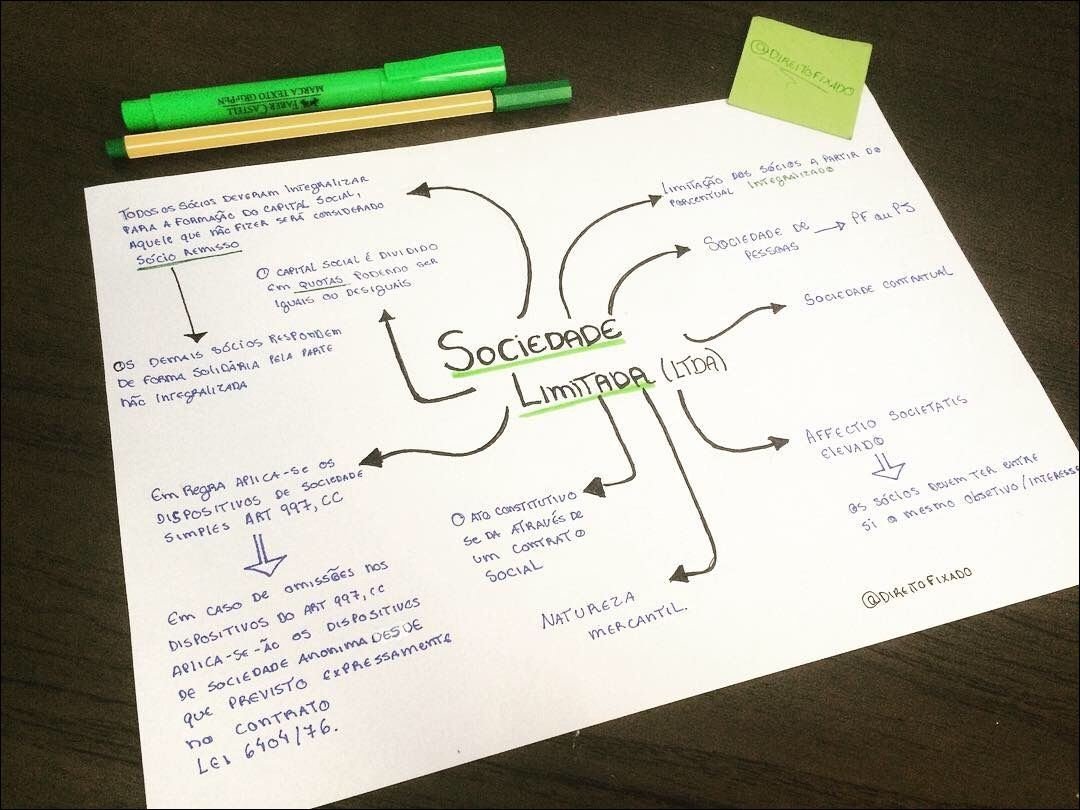 FABER CASTELL
MARCA TEXTO GRIFPEN
@DIREITOFIXADO
TODOS OS SÓCIOS DEVERAM INTEGRALIZAR
PARA A FORMAÇÃO DO CAPITAL SOCIAL,
AQUELE QUE NÃO FIZER SERÁ CONSIDERADO
SÓCIO REMISSO
OS DEMAIS SÓCIOS RESPONDEM
DE FORMA SOLIDÁRIA PELA PARTE
NÃO INTEGRALIZADA
O CAPITAL SOCIAL É DIVIDIDO
EM QUOTAS PODENDO SER
IGUAIS OU DESIGUAIS
LIMITAÇÃO DOS SÓCIOS A PARTIR DO
PORCENTUAL INTEGRALIZADO
SOCIEDADE DE
PESSOAS → PF OU PJ
SOCIEDADE CONTRATUAL
SOCIEDADE
LIMITADA (LTDA)
AFFECTIO SOCIETATIS
ELEVADO
OS SÓCIOS DEVEM TER ENTRE
SI O MESMO OBJETIVO/INTERESSE
EM REGRA APLICA-SE OS
DISPOSITIVOS DE SOCIEDADE
SIMPLES ART 997, CC
EM CASO DE OMISSÕES NOS
DISPOSITIVOS DO ART 997, CC
APLICA-SE-ÃO OS DISPOSITIVOS
DE SOCIEDADE ANONIMA DESDE
QUE PREVISTO EXPRESSAMENTE
NO CONTRATO
LEI 6404/76.
O ATO CONSTITUTIVO
SE DA ATRAVÉS DE
UM CONTRATO
SOCIAL
NATUREZA
MERCANTIL.
@DIREITOFIXADO